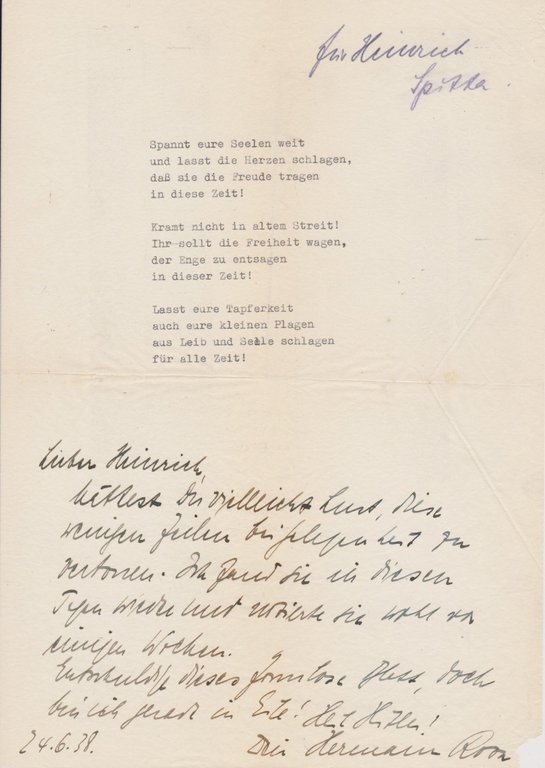 für Heinrich
Spitta.
Spannt eure Seelen weit
und lasst die Herzen schlagen,
daß sie die Freude tragen
in diese Zeit!
Kramt nicht in altem Streit!
Ihr sollt die Freiheit wagen,
der Enge zu entsagen
in dieser Zeit!
Lasst eure Tapferkeit
auch eure kleinen Plagen
aus Leib und Seele schlagen
für alle Zeit!
Lieber Heinrich,
hättest Du vielleicht Lust, diese
wenigen Zeilen bei Gelegenheit zu
vertonen. Ich fand sie in diesen
Tagen wieder und notierte sie wohl vor
einigen Wochen.
Entschuldige dieses formlose, doch
bin ich gerade in Eile! Heil Hitler!
24.6.38. Dein Hermann Roon